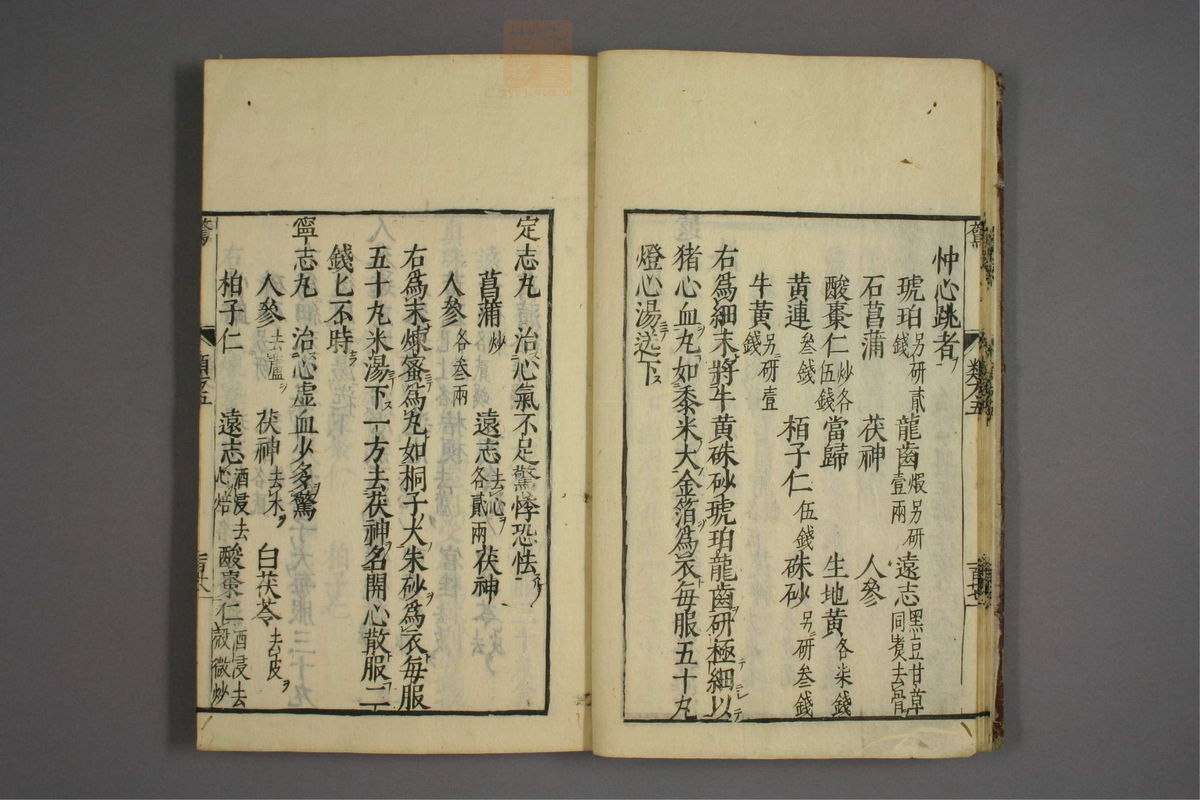 忡心跳者
琥珀另研貳錢 龍齒煆另研壹兩 遠志黑豆甘草同煑去骨
石菖蒲 茯神 人參
酸棗仁炒各伍錢 當歸 生地黃各柒錢
黃連叁錢 栢子仁伍錢 硃砂另研叁錢
牛黃另研壹錢
右為細末將牛黃硃砂琥珀龍齒研極細以
猪心血丸如黍米大金箔為衣每服五十丸
燈心湯送下
定志丸 治心氣不足驚悸恐怯
菖蒲炒 遠志去心各貳兩 茯神
人參各叁兩
右為末煉蜜為丸如桐子大朱砂為衣每服
五十丸米湯下一方去茯神名開心散服二
錢匕不時
寧志丸 治心虛血少多驚
人參去蘆 茯神去木 白茯苓去皮
柏子仁 遠志酒浸去心焙 酸棗仁酒浸去殼微炒